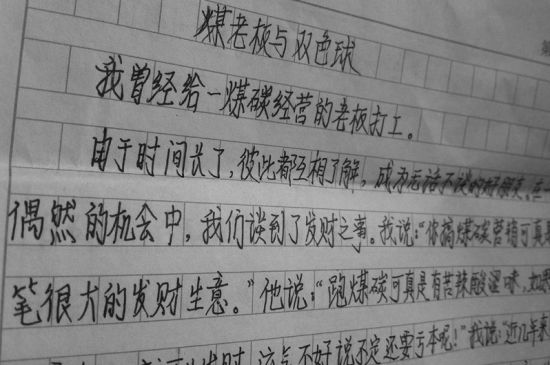 煤老板与双色球
我曾经给一煤碳经营的老板打工。
由于时间长了，彼此都互相了解，成为无话不谈的好朋友。在
偶然的机会中，我们谈到了发财之事。我说：“你搞煤碳营销可真是
笔很大的发财生意。”他说：“跑煤碳可真是有苦辣酸涩味，如果
发时，运气不好说不定还要亏本呢！”我说：“近几年来